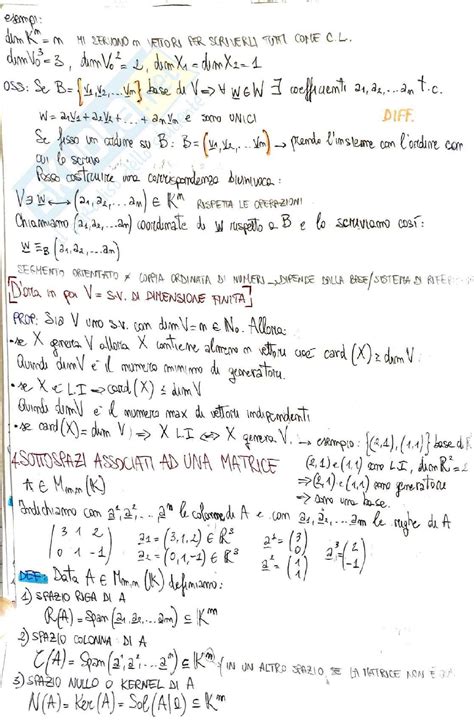 esempi:
dim Kⁿ = n MI SERVONO n VETTORI PER SCRIVERLI TUTTI COME C.L.
dim V₀³ = 3, dim V₀² = 2, dim X₁ = dim X₂ = 1
OSS: Se B = {v₁, v₂, ... vₙ} base di V ⇒ ∀ w ∈ W ∃ coefficienti a₁, a₂, ... aₙ t.c.
w = a₁v₁ + a₂v₂ + ... + aₙvₙ e sono UNICI
DIFF.
Se fisso un ordine su B: B = (v₁, v₂, ... vₙ) → prendo l'insieme con l'ordine con
cui lo scrivo
Posso costruire una corrispondenza biunivoca:
V ∋ w ↔ (a₁, a₂, ... aₙ) ∈ Kⁿ RISPETTA LE OPERAZIONI
Chiamiamo (a₁, a₂, ... aₙ) coordinate di w rispetto a B e lo scriviamo così:
w ≡_B (a₁, a₂, ... aₙ)
SEGMENTO ORIENTATO ≠ COPPIA ORDINATA DI NUMERI → DIPENDE DALLA BASE/SISTEMA DI
[D'ora in poi V = S.V. DI DIMENSIONE FINITA]
PROP: Sia V uno s.v. con dim V = n ∈ N₀. Allora:
• se X genera V allora X contiene almeno n vettori cioè card (X) ≥ dim V.
Quindi dim V è il numero minimo di generatori.
• se X è LI ⇒ card (X) ≤ dim V
Quindi dim V è il numero max di vettori indipendenti
• se card(X) = dim V ⇒ X LI ⇔ X genera V. → esempio: {(2,1), (1,1)} base di
4. SOTTOSPAZI ASSOCIATI AD UNA MATRICE
(2,1) e (1,1) sono LI, dim R² = 2
⇒ (2,1) e (1,1) sono generatore
⇒ sono una base.
A ∈ Mm,n (K)
Indichiamo con a¹, a², ... aⁿ le colonne di A e con a₁, a₂, ... aₘ le righe di A
(3 1 2) a₁ = (3,1,2) ∈ R³ a¹ = (3) a³ = (2)
(0 1 -1) a₂ = (0,1,-1) ∈ R³ (0) (-1)
a² = (1)
(1)
DEF: Data A ∈ Mm,n (K) definiamo:
1) SPAZIO RIGA DI A
R(A) = Span (a₁, a₂, ... aₘ) ⊆ Kⁿ
2) SPAZIO COLONNA DI A
C(A) = Span (a¹, a², ... aⁿ) ⊆ Kᵐ (IN UN ALTRO SPAZIO SE LA MATRICE NON È
3) SPAZIO NULLO O KERNEL DI A
N(A) = Ker(A) = Sol(A|0) ⊆ Kⁿ